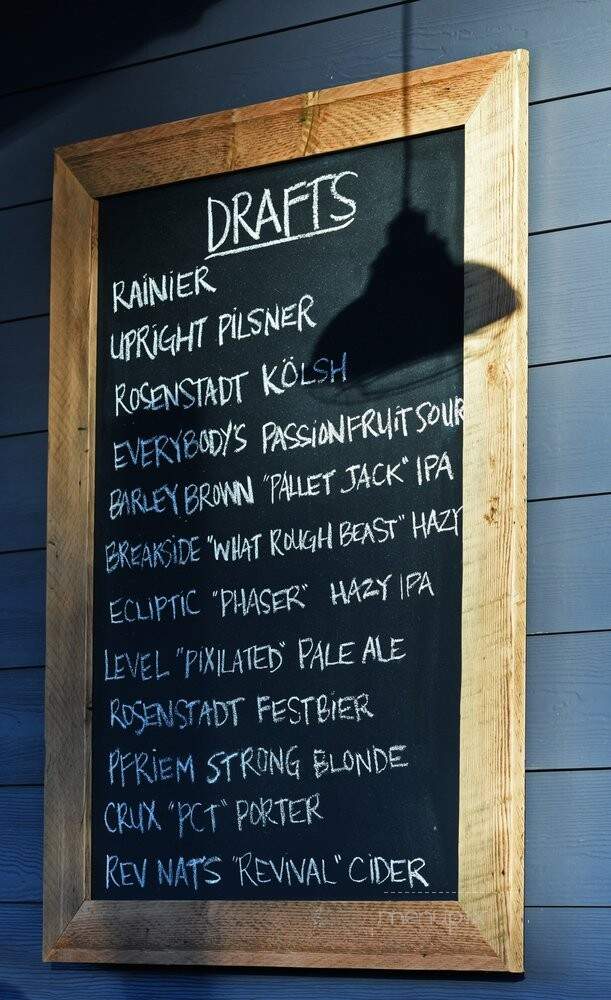 DRAFTS
RAINIER
UPRIGHT PILSNER
ROSENSTADT KÖLSH
EVERYBODY'S PASSIONFRUIT SOUR
BARLEY BROWN "PALLET JACK" IPA
BREAKSIDE "WHAT ROUGH BEAST" HAZY
ECLIPTIC "PHASER" HAZY IPA
LEVEL "PIXILATED" PALE ALE
ROSENSTADT FESTBIER
PFRIEM STRONG BLONDE
CRUX "PCT" PORTER
REV NAT'S "REVIVAL" CIDER